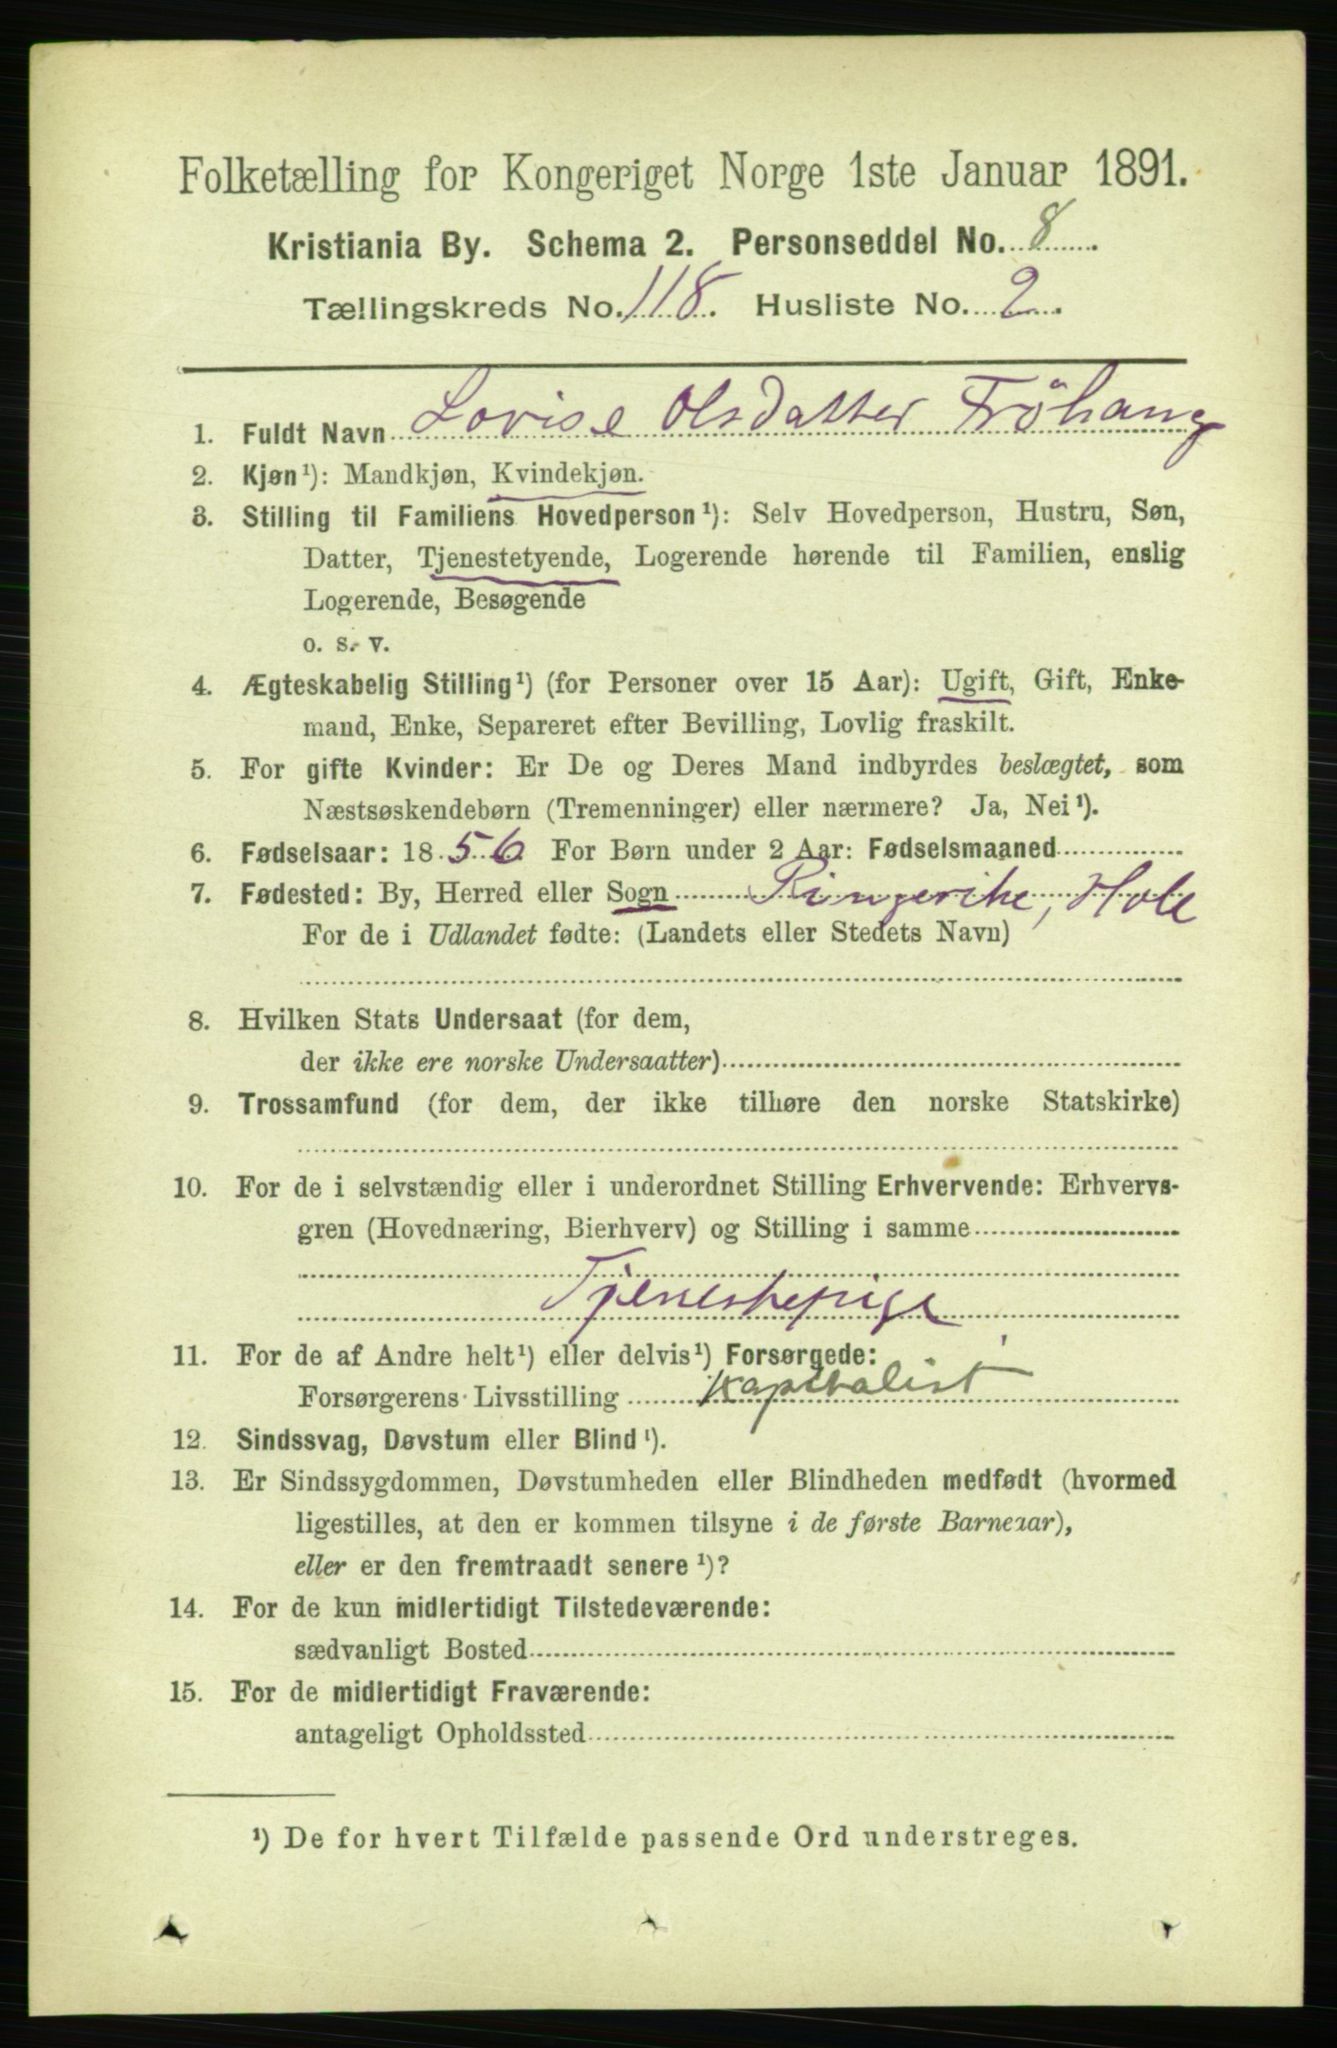 Folketælling for Kongeriget Norge 1ste Januar 1891.
Kristiania By. Schema 2. Personseddel No. 8
Tællingskreds No. 118. Husliste No. 2
1. Fuldt Navn Lovise Olsdatter Fröhaug
2. Kjøn¹): Mandkjøn, Kvindekjøn.
3. Stilling til Familiens Hovedperson¹): Selv Hovedperson, Hustru, Søn,
Datter, Tjenestetyende, Logerende hørende til Familien, enslig
Logerende, Besøgende
o. s. v.
4. Ægteskabelig Stilling¹) (for Personer over 15 Aar): Ugift, Gift, Enke-
mand, Enke, Separeret efter Bevilling, Lovlig fraskilt.
5. For gifte Kvinder: Er De og Deres Mand indbyrdes beslægtet, som
Næstsøskendebørn (Tremenninger) eller nærmere? Ja, Nei¹).
6. Fødselsaar: 1856 For Børn under 2 Aar: Fødselsmaaned
7. Fødested: By, Herred eller Sogn Ringerike, Hole
For de i Udlandet fødte: (Landets eller Stedets Navn)
8. Hvilken Stats Undersaat (for dem,
der ikke ere norske Undersaatter)
9. Trossamfund (for dem, der ikke tilhøre den norske Statskirke)
10. For de i selvstændig eller i underordnet Stilling Erhvervende: Erhvervs-
gren (Hovednæring, Bierhverv) og Stilling i samme
Tjenestepige
11. For de af Andre helt¹) eller delvis¹) Forsørgede:
Forsørgerens Livsstilling Kapitalist
12. Sindssvag, Døvstum eller Blind¹).
13. Er Sindssygdommen, Døvstumheden eller Blindheden medfødt (hvormed
ligestilles, at den er kommen tilsyne i de første Barneaar),
eller er den fremtraadt senere¹)?
14. For de kun midlertidigt Tilstedeværende:
sædvanligt Bosted
15. For de midlertidigt Fraværende:
antageligt Opholdssted
¹) De for hvert Tilfælde passende Ord understreges.